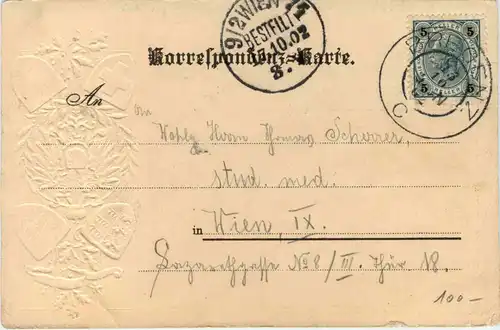 9/2 WIEN
BESTELLT
10.02
5 5
Korrespondenz-Karte.
5 5
An
An
Wohlg. Herrn Scherrer,
stud. med.
in Wien, IX.
Lazarethgasse No 8/III. Thür 18.
100-